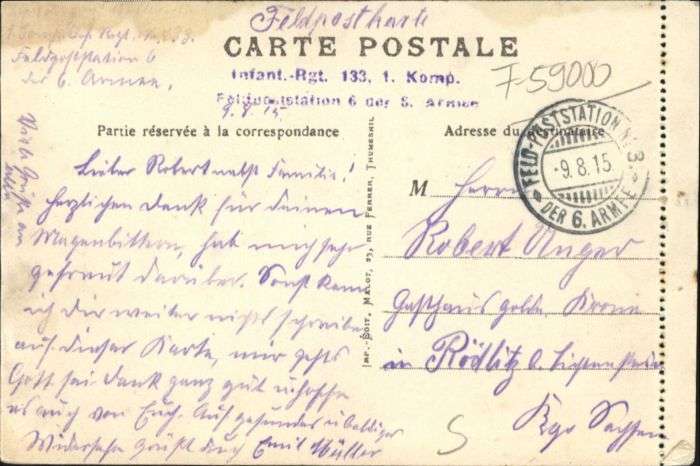 Feldpostkarte
CARTE POSTALE
F-59000
Infant.-Rgt. 133, 1. Komp.
Feldpoststation 6 der 6. Armee
9.8.15
Feldpoststation 6
der 6. Armee.
Partie réservée à la correspondance
Adresse du destinataire
FELD-POSTSTATION Nr. 3.
-9.8.15
DER 6. ARMEE
Viele Grüße an
Lieber Robert nebst Familie!
herzlichen Dank für deinen
Magenbittern, hab mich sehr
gefreut darüber. Sonst kann
ich dir weiter nichts schreiben
auf dieser Karte, mir gehts
Gott sei Dank ganz gut u. hoffe
es auch von Euch. Auf gesundes u. baldiges
Wiedersehn grüßt Euch Emil Müller
IMP.-EDIT, MALOT, 23, RUE FERRER, THUMESNIL
M Herrn
Robert Unger
Gasthaus goldn. Krone
in Rödlitz b. Lichtenstein
Kgr. Sachsen
S